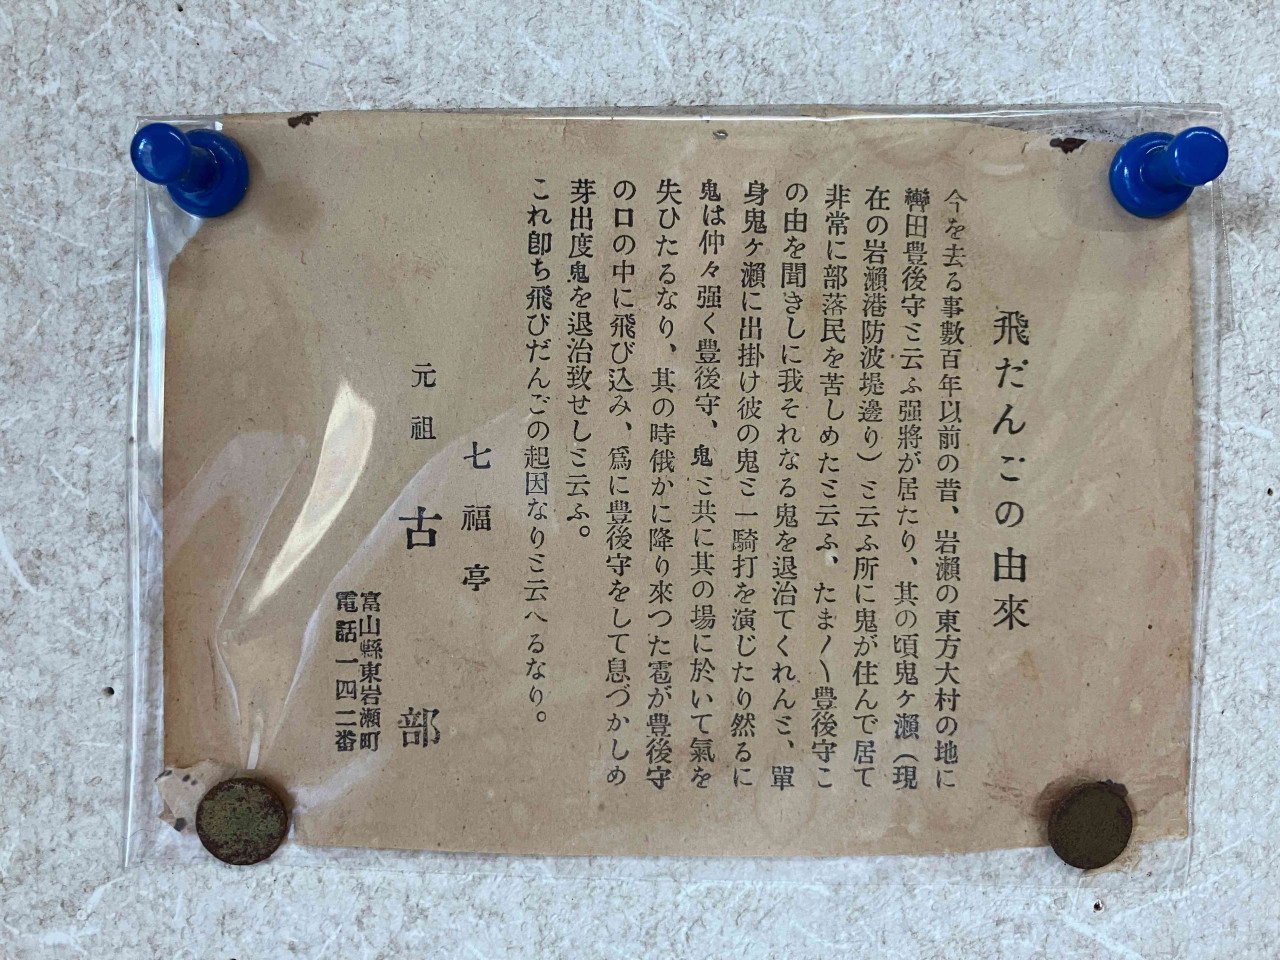 飛だんごの由來
今を去る事數百年以前の昔、岩瀨の東方大村の地に
轡田豊後守ミ云ふ强將が居たり、其の頃鬼ヶ瀨(現
在の岩瀨港防波堤邊り)ミ云ふ所に鬼が住んで居て
非常に部落民を苦しめたミ云ふ、たま〳〵豊後守こ
の由を聞きしに我それなる鬼を退治てくれんミ、單
身鬼ヶ瀨に出掛け彼の鬼ミ一騎打を演じたり然るに
鬼は仲々强く豊後守、鬼ミ共に其の場に於いて氣を
失ひたるなり、其の時俄かに降り來つた雹が豊後守
の口の中に飛び込み、爲に豊後守をして息づかしめ
芽出度鬼を退治致せしミ云ふ。
これ卽ち飛びだんごの起因なりミ云へるなり。
七福亭
元祖 古部
富山縣東岩瀨町
電話一四二番